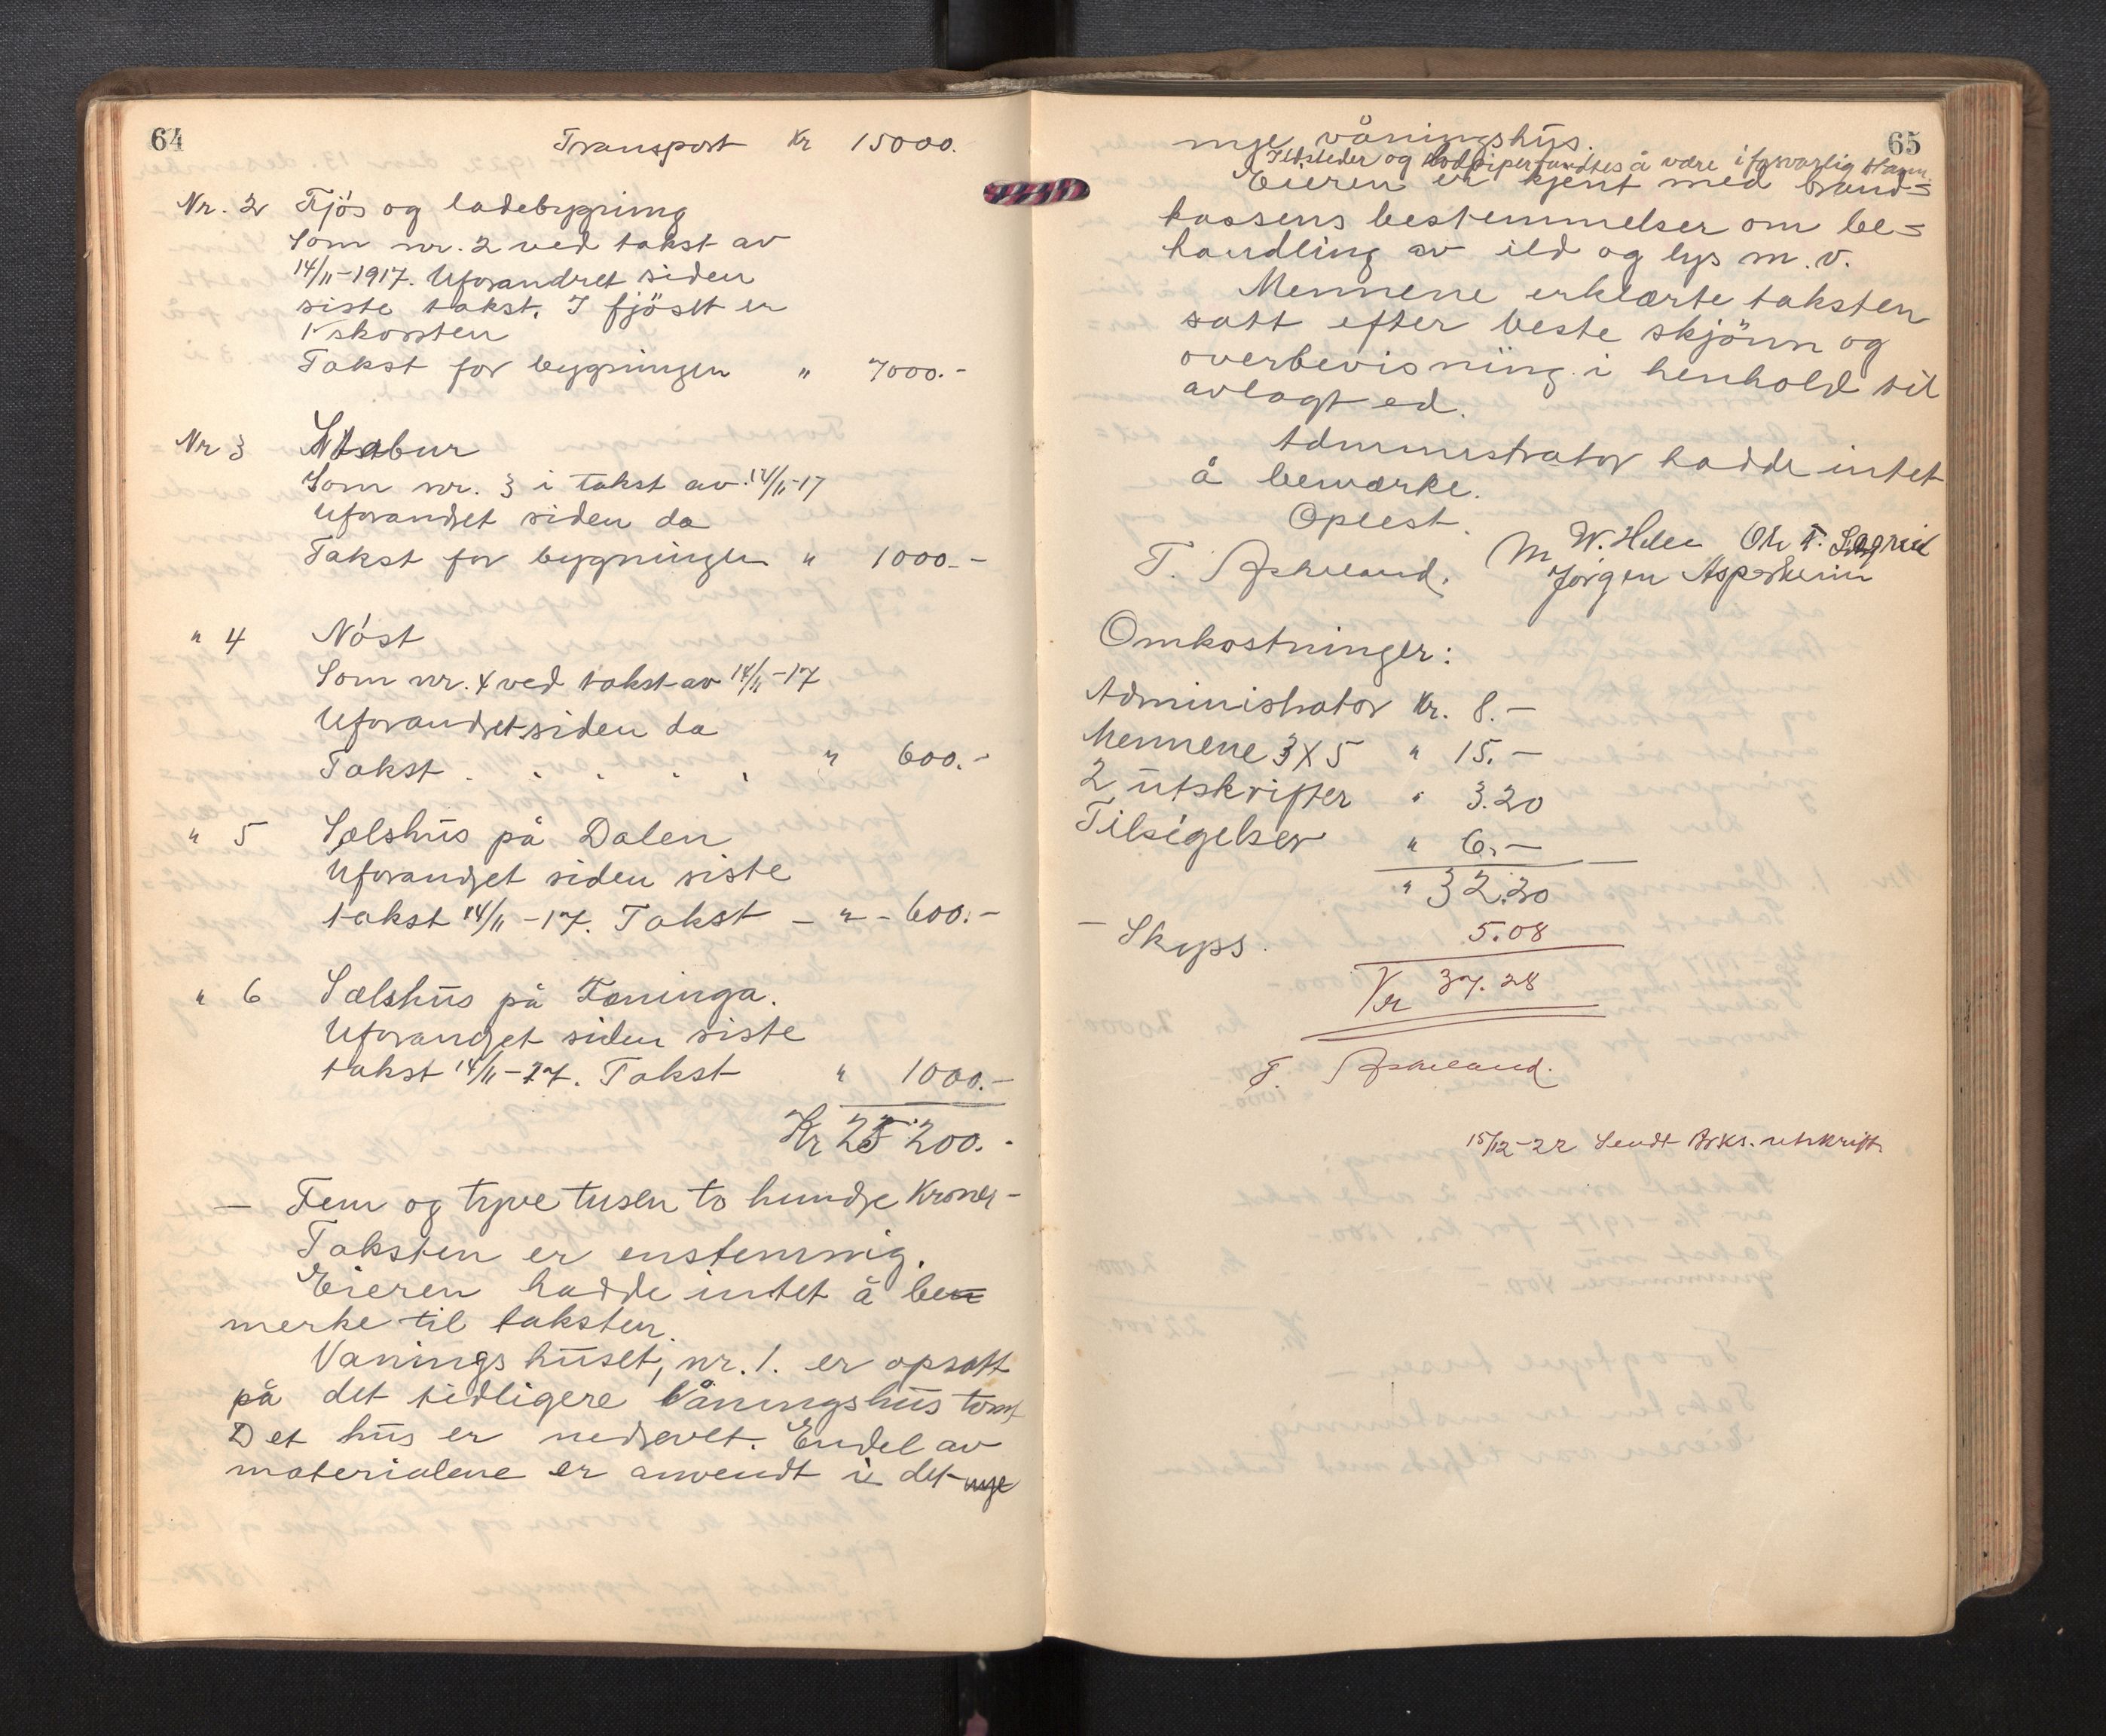 64
Transport Kr 15000.
Nr. 2 Fjös og ladebygning
Som nr. 2 ved takst av
14/11-1917. Uforandret siden
siste takst. I fjöset er
1 skorsten
Takst for bygningen " 7000.-
Nr 3 Stabur
Som nr. 3 i takst av 14/11-17
Uforandret siden da
Takst for bygningen " 1000.-
" 4 Nöst
Som nr. 4 ved takst av 14/11-17
Uforandret siden da
Takst . . . . . " 600.-
" 5 Sælshus på Dalen
Uforandret siden siste
takst 14/11-17. Takst - " - 600.-
" 6 Sælshus på Fæninga.
Uforandret siden siste
takst 14/11-17. Takst " 1000.-
Kr 25200.-
- Fem og tyve tusen to hundre Kroner-
Taksten er enstemmig.
Eieren hadde intet å be
merke til taksten.
Vaningshuset, nr. 1. er opsatt
på det tidligere våningshus tomt
Det hus er nedrevet. Endel av
materialene er anvendt i det nye
65
nye våningshus.
Ildsteder og fandtes å være i forsvarlig stann.
Eieren er kjent med brand=
kassens bestemmelser om be=
handling av ild og lys m.v.
Mennene erklærte taksten
satt efter beste skjönn og
overbevisning i henhold til
avlagt ed.
Administrator hadde intet
å bemærke.
Oplest.
T. Askeland. M W. Helle Ole T. Sagrid
Jörgen Asperheim
Omkostninger:
Administrator Kr. 8.-
Mennene 3X5 " 15.-
2 utskrifter " 3.20
Tilsigelser " 6.-
" 32.20
- Skyss. 5.08
Kr 37.28
T. Askeland.
15/12-22 Sendt Brks. utskrift